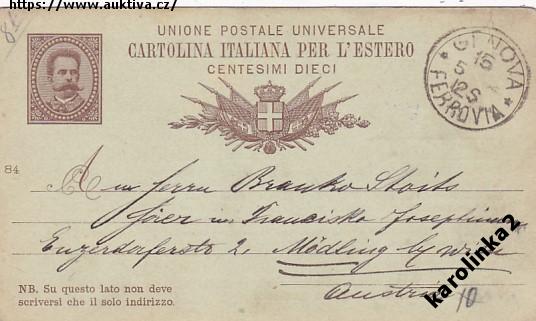 https://www.auktiva.cz/
UNIONE POSTALE UNIVERSALE
CARTOLINA ITALIANA PER L'ESTERO
CENTESIMI DIECI
GENOVA
15
5
12S
FERROVIA
84
Herrn Branko Stoits
Hörer im Francisko Josephinum
Enzersdorferstr 2. Mödling by Wien
Austria
NB. Su questo lato non deve
scriversi che il solo indirizzo.
10
karolinka2